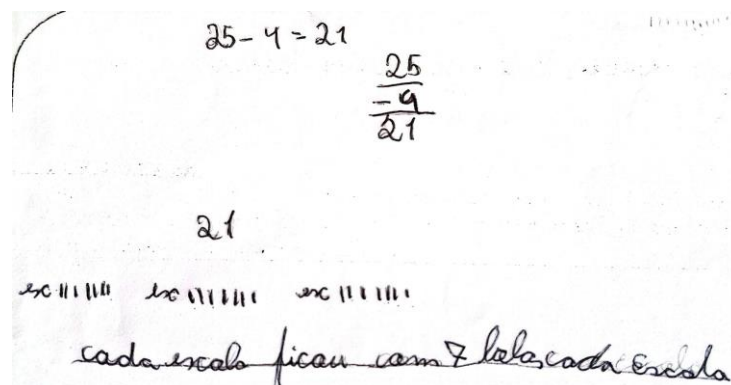 25 - 4 = 21
25
- 4
21
21
esc ||||||| esc ||||||| esc |||||||
cada escola ficou com 7 bolas cada escola